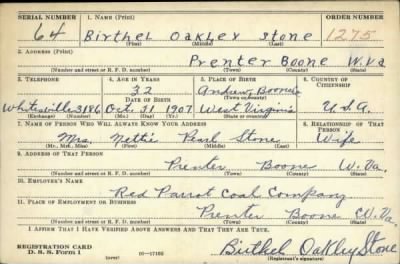 SERIAL NUMBER 1. NAME (Print) ORDER NUMBER
64 Birthel Oakley Stone 1275
(First) (Middle) (Last)
2. ADDRESS (Print)
Prenter Boone W.Va
(Number and street or R. F. D. number) (Town) (County) (State)
3. TELEPHONE 4. AGE IN YEARS 5. PLACE OF BIRTH 6. COUNTRY OF CITIZENSHIP
32 Andrew Boone
DATE OF BIRTH (Town or county)
Whitesville 3186 Oct. 31 1907 West Virginia U.S.A.
(Exchange) (Number) (Mo.) (Day) (Yr.) (State or country)
7. NAME OF PERSON WHO WILL ALWAYS KNOW YOUR ADDRESS 8. RELATIONSHIP OF THAT PERSON
Mrs. Nettie Pearl Stone Wife
(Mr., Mrs., Miss) (First) (Middle) (Last)
9. ADDRESS OF THAT PERSON
Prenter Boone W. Va.
(Number and street or R. F. D. number) (Town) (County) (State)
10. EMPLOYER'S NAME
Red Parrot Coal Company
11. PLACE OF EMPLOYMENT OR BUSINESS
Prenter Boone W. Va.
(Number and street or R. F. D. number) (Town) (County) (State)
I AFFIRM THAT I HAVE VERIFIED ABOVE ANSWERS AND THAT THEY ARE TRUE.
REGISTRATION CARD
D. S. S. Form 1 Birthel Oakley Stone
(Registrant's signature)